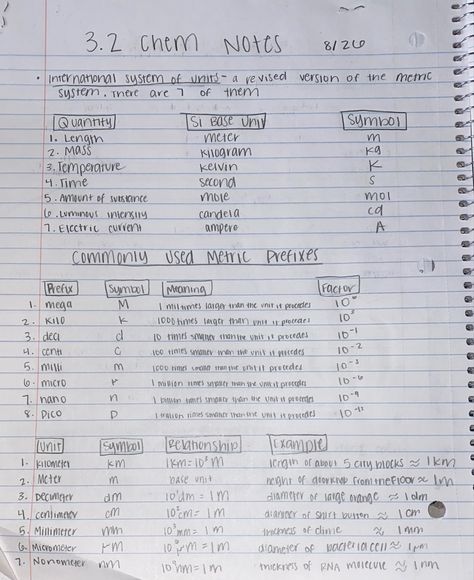 3.2 Chem Notes 8/26
• International system of units - a revised version of the metric
system. There are 7 of them
Quantity SI Base Unit Symbol
1. Length meter m
2. Mass kilogram kg
3. Temperature kelvin K
4. Time second s
5. Amount of substance mole mol
6. Luminous intensity candela cd
7. Electric current ampere A
Commonly Used Metric Prefixes
Prefix Symbol Meaning Factor
1. mega M 1 mil times larger than the unit it precedes 10⁶
2. Kilo K 1000 times larger than unit it precedes 10³
3. deci d 10 times smaller than the unit it precedes 10⁻¹
4. centi c 100 times smaller than the unit it precedes 10⁻²
5. milli m 1000 times small than the unit it precedes 10⁻³
6. micro μ 1 million times smaller than the unit it precedes 10⁻⁶
7. nano n 1 billion times smaller than the unit it precedes 10⁻⁹
8. Pico p 1 trillion times smaller than the unit it precedes 10⁻¹²
Unit Symbol Relationship Example
1. Kilometer km 1km = 10³m length of about 5 city blocks ≈ 1km
2. Meter m base unit height of doorknob from the floor ≈ 1m
3. Decimeter dm 10¹dm = 1m diameter of large orange ≈ 1dm
4. centimeter cm 10²cm = 1m diameter of shirt button ≈ 1cm
5. Millimeter mm 10³mm = 1m thickness of dime ≈ 1mm
6. Micrometer μm 10⁶μm = 1m diameter of bacteria cell ≈ 1μm
7. Nanometer nm 10⁹nm = 1m thickness of RNA molecule ≈ 1nm